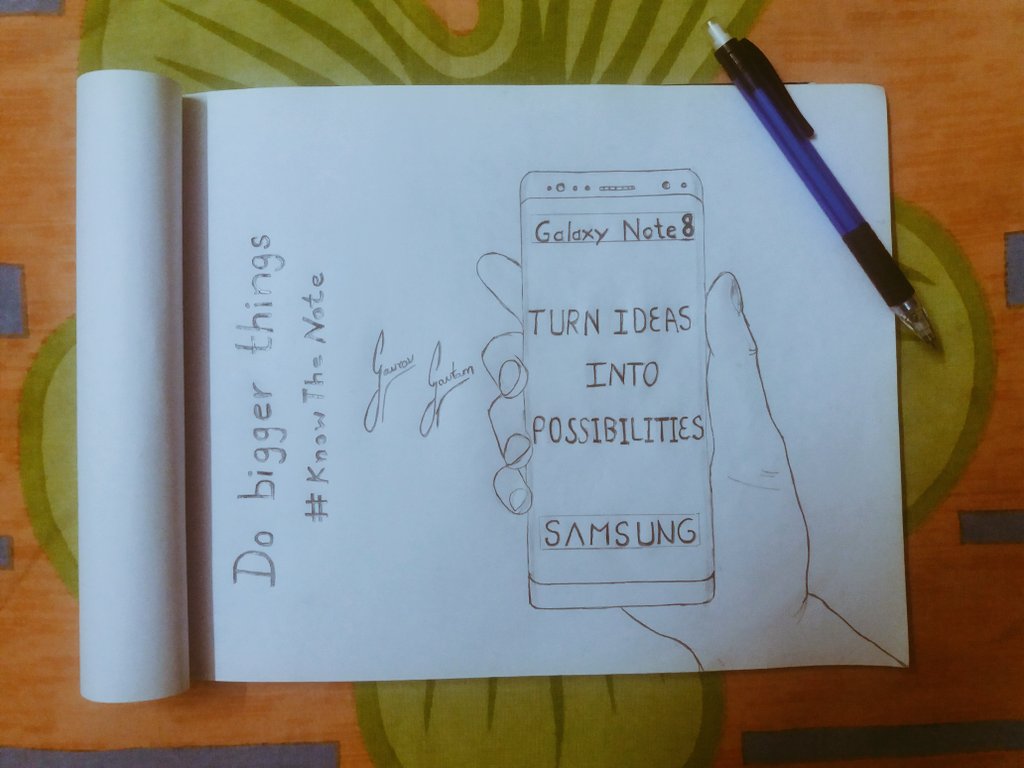 Do bigger things
#KnowTheNote
Gaurav
Gautam
Galaxy Note8
TURN IDEAS
INTO
POSSIBILITIES
SAMSUNG